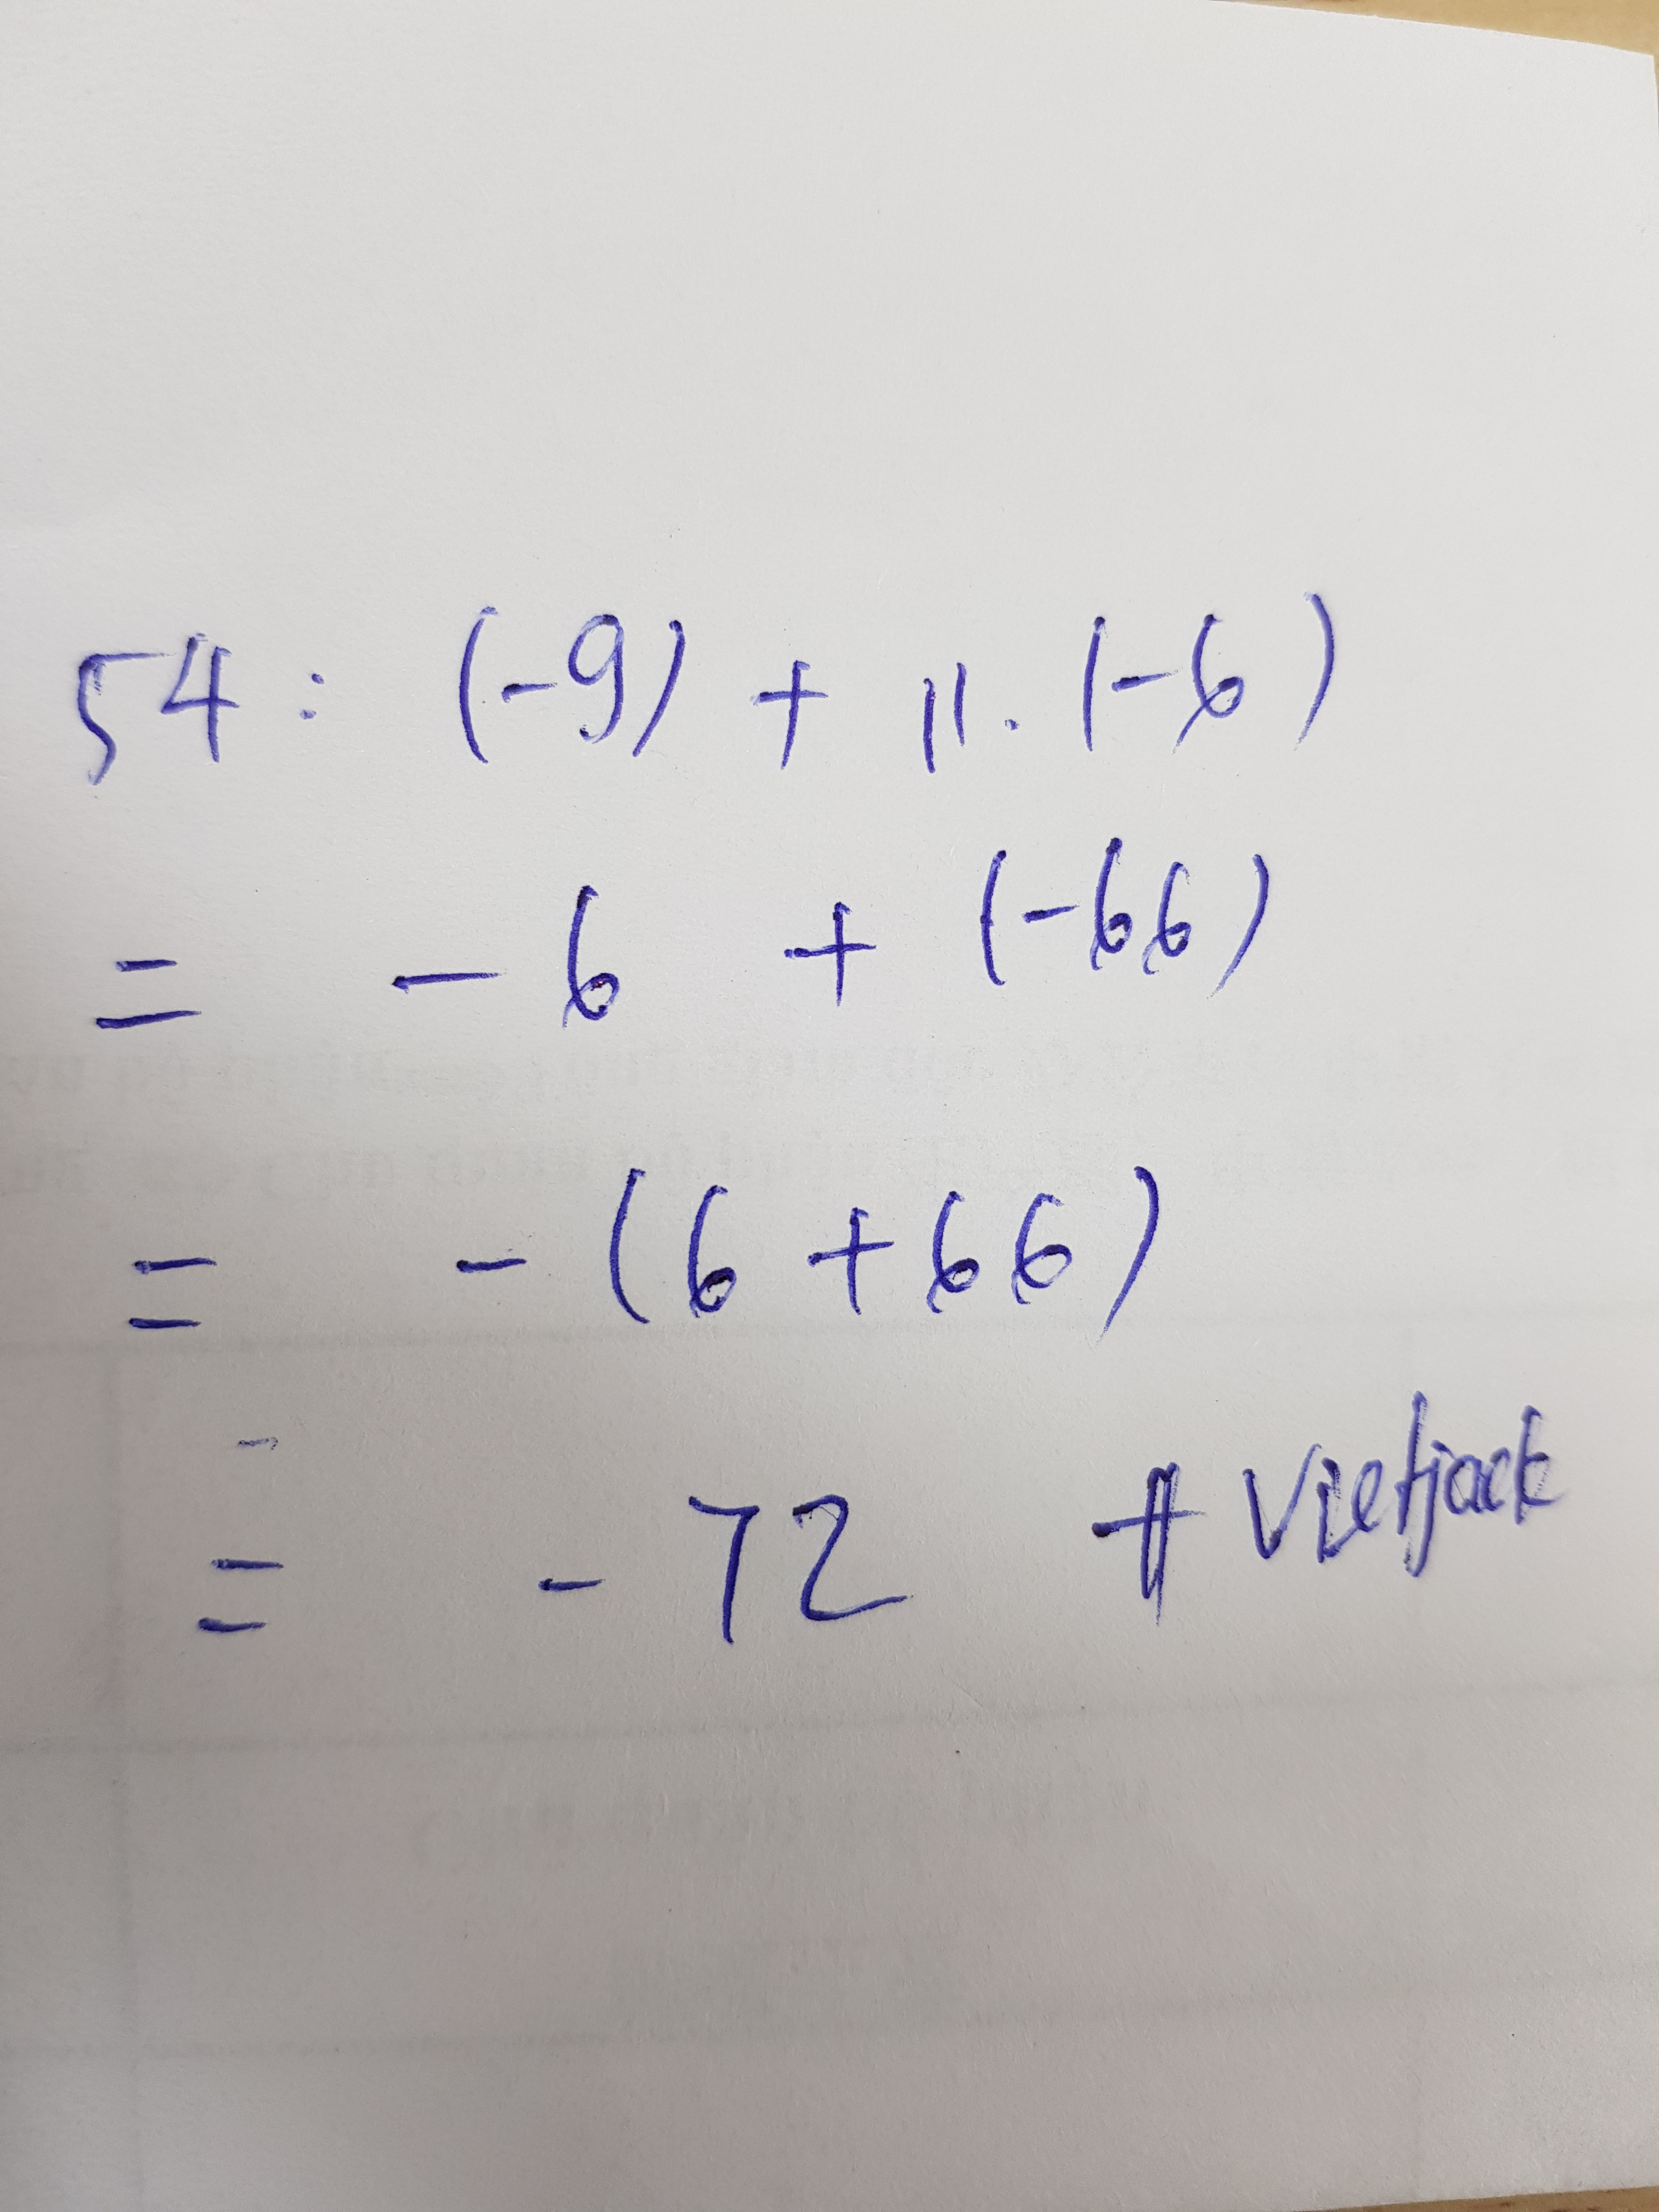 54 : (-9) + 11 . (-6)
= - 6 + (-66)
= - (6 + 66)
= - 72 # Vietjack